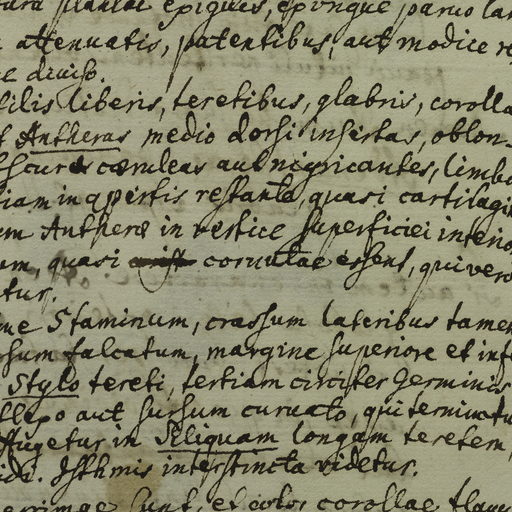 plantae exiguis, eoque parvo
attenuatis, patentibus, aut modice
diviso.
liberis, teretibus, glabris, corolla
Antheras medio dorsi insertas, oblon-
obscure caeruleas aut nigricantes, limbo
in apertis restante, quasi cartilagi
Antherae in vertice superficiei interio
quasi cornutae essent, qui vero
tur.
Staminum, crassum lateribus tamen
sum falcatum, margine superiore et inf
Stylo tereti, tertiam circiter Germinis
aut sursum curvato, qui terminatu
in Siliquam longam teretem,
Isthmis interstincta videtur.
sunt, et color corollae flavu